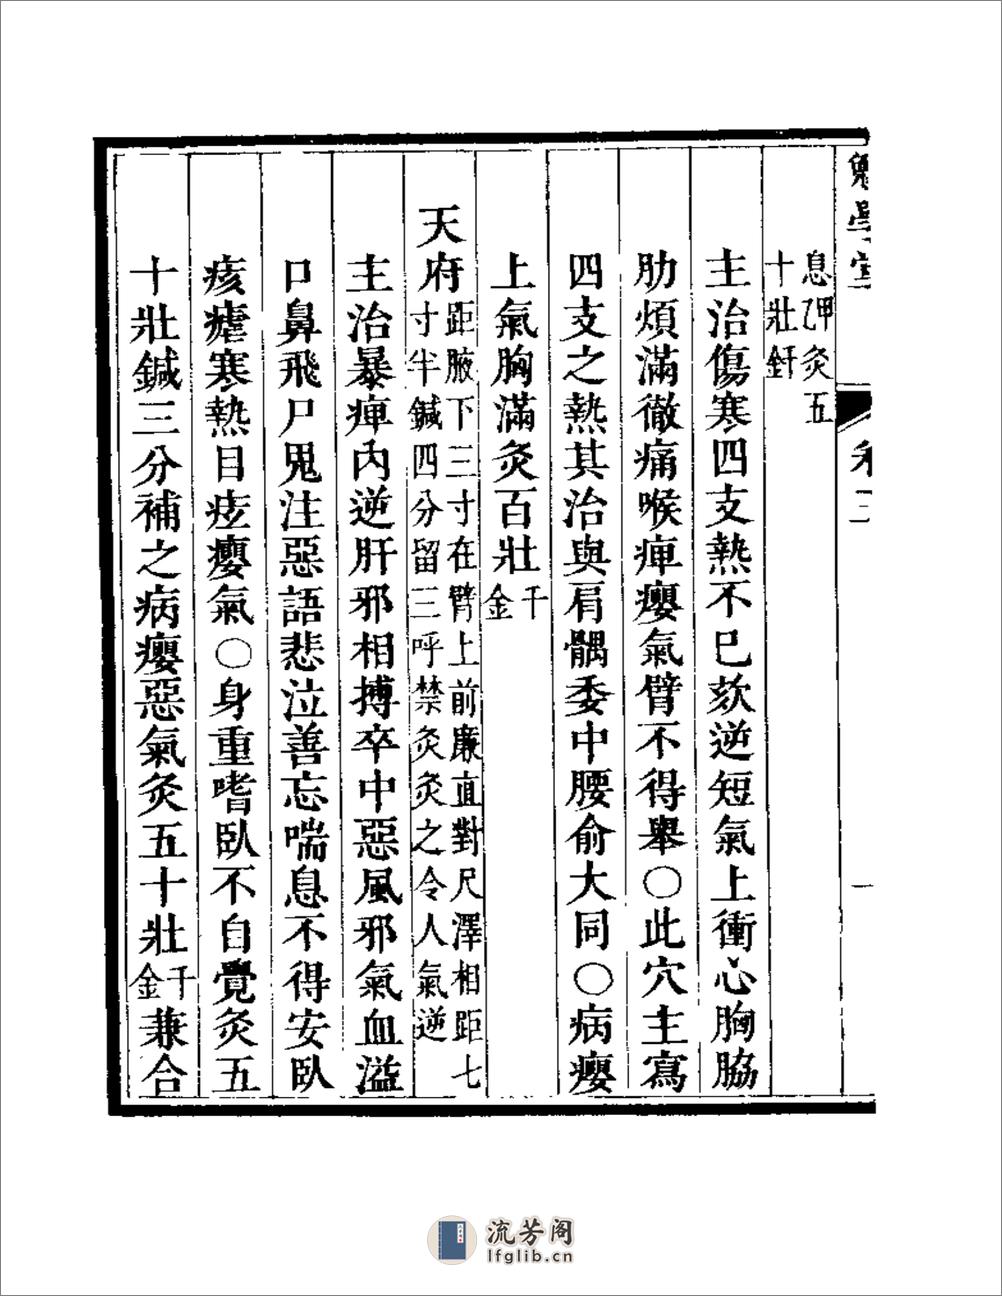 卷三
一
息甲乙灸五
十壯釺
主治傷寒四支熱不已欬逆短氣上衝心胸脇
肋煩滿徹痛喉痺癭氣臂不得舉○此穴主寫
四支之熱其治與肩髃委中腰俞大同○病癭
上氣胸滿灸百壯千金
天府距腋下三寸在臂上前廉直對尺澤相距七
寸半鍼四分留三呼禁灸灸之令人氣逆
主治暴痺內逆肝邪相搏卒中惡風邪氣血溢
口鼻飛尸鬼注惡語悲泣善忘喘息不得安臥
痎瘧寒熱目痃癭氣○身重嗜臥不自覺灸五
十壯鍼三分補之病癭惡氣灸五十壯千金兼合
流芳阁
lfglib.cn